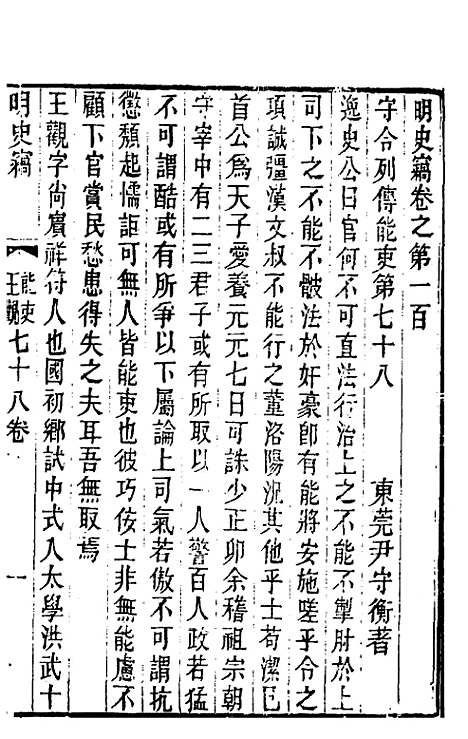 明史竊卷之第一百
守令列傳能吏第七十八　東莞尹守衡著
逸史公曰官何不可直法行治上之不能不掣肘於上
司下之不能不骫法於奸豪卽有能將安施嗟乎令之
項誠彊漢文叔不能行之董洛陽況其他乎士苟潔已
首公爲天子愛養元元七日可誅少正卯余稽祖宗朝
守宰中有二三君子或有所取以一人警百人政若猛
不可謂酷或有所爭以下屬論上司氣若傲不可謂抗
懲頽起懦詎可無人皆能吏也彼巧佞士非無能慮不
顧下官賞民愁患得失之夫耳吾無取焉
王觀字尚賓祥符人也國初鄉試中式入太學洪武十
明史竊　能吏　王觀　七十八卷　一